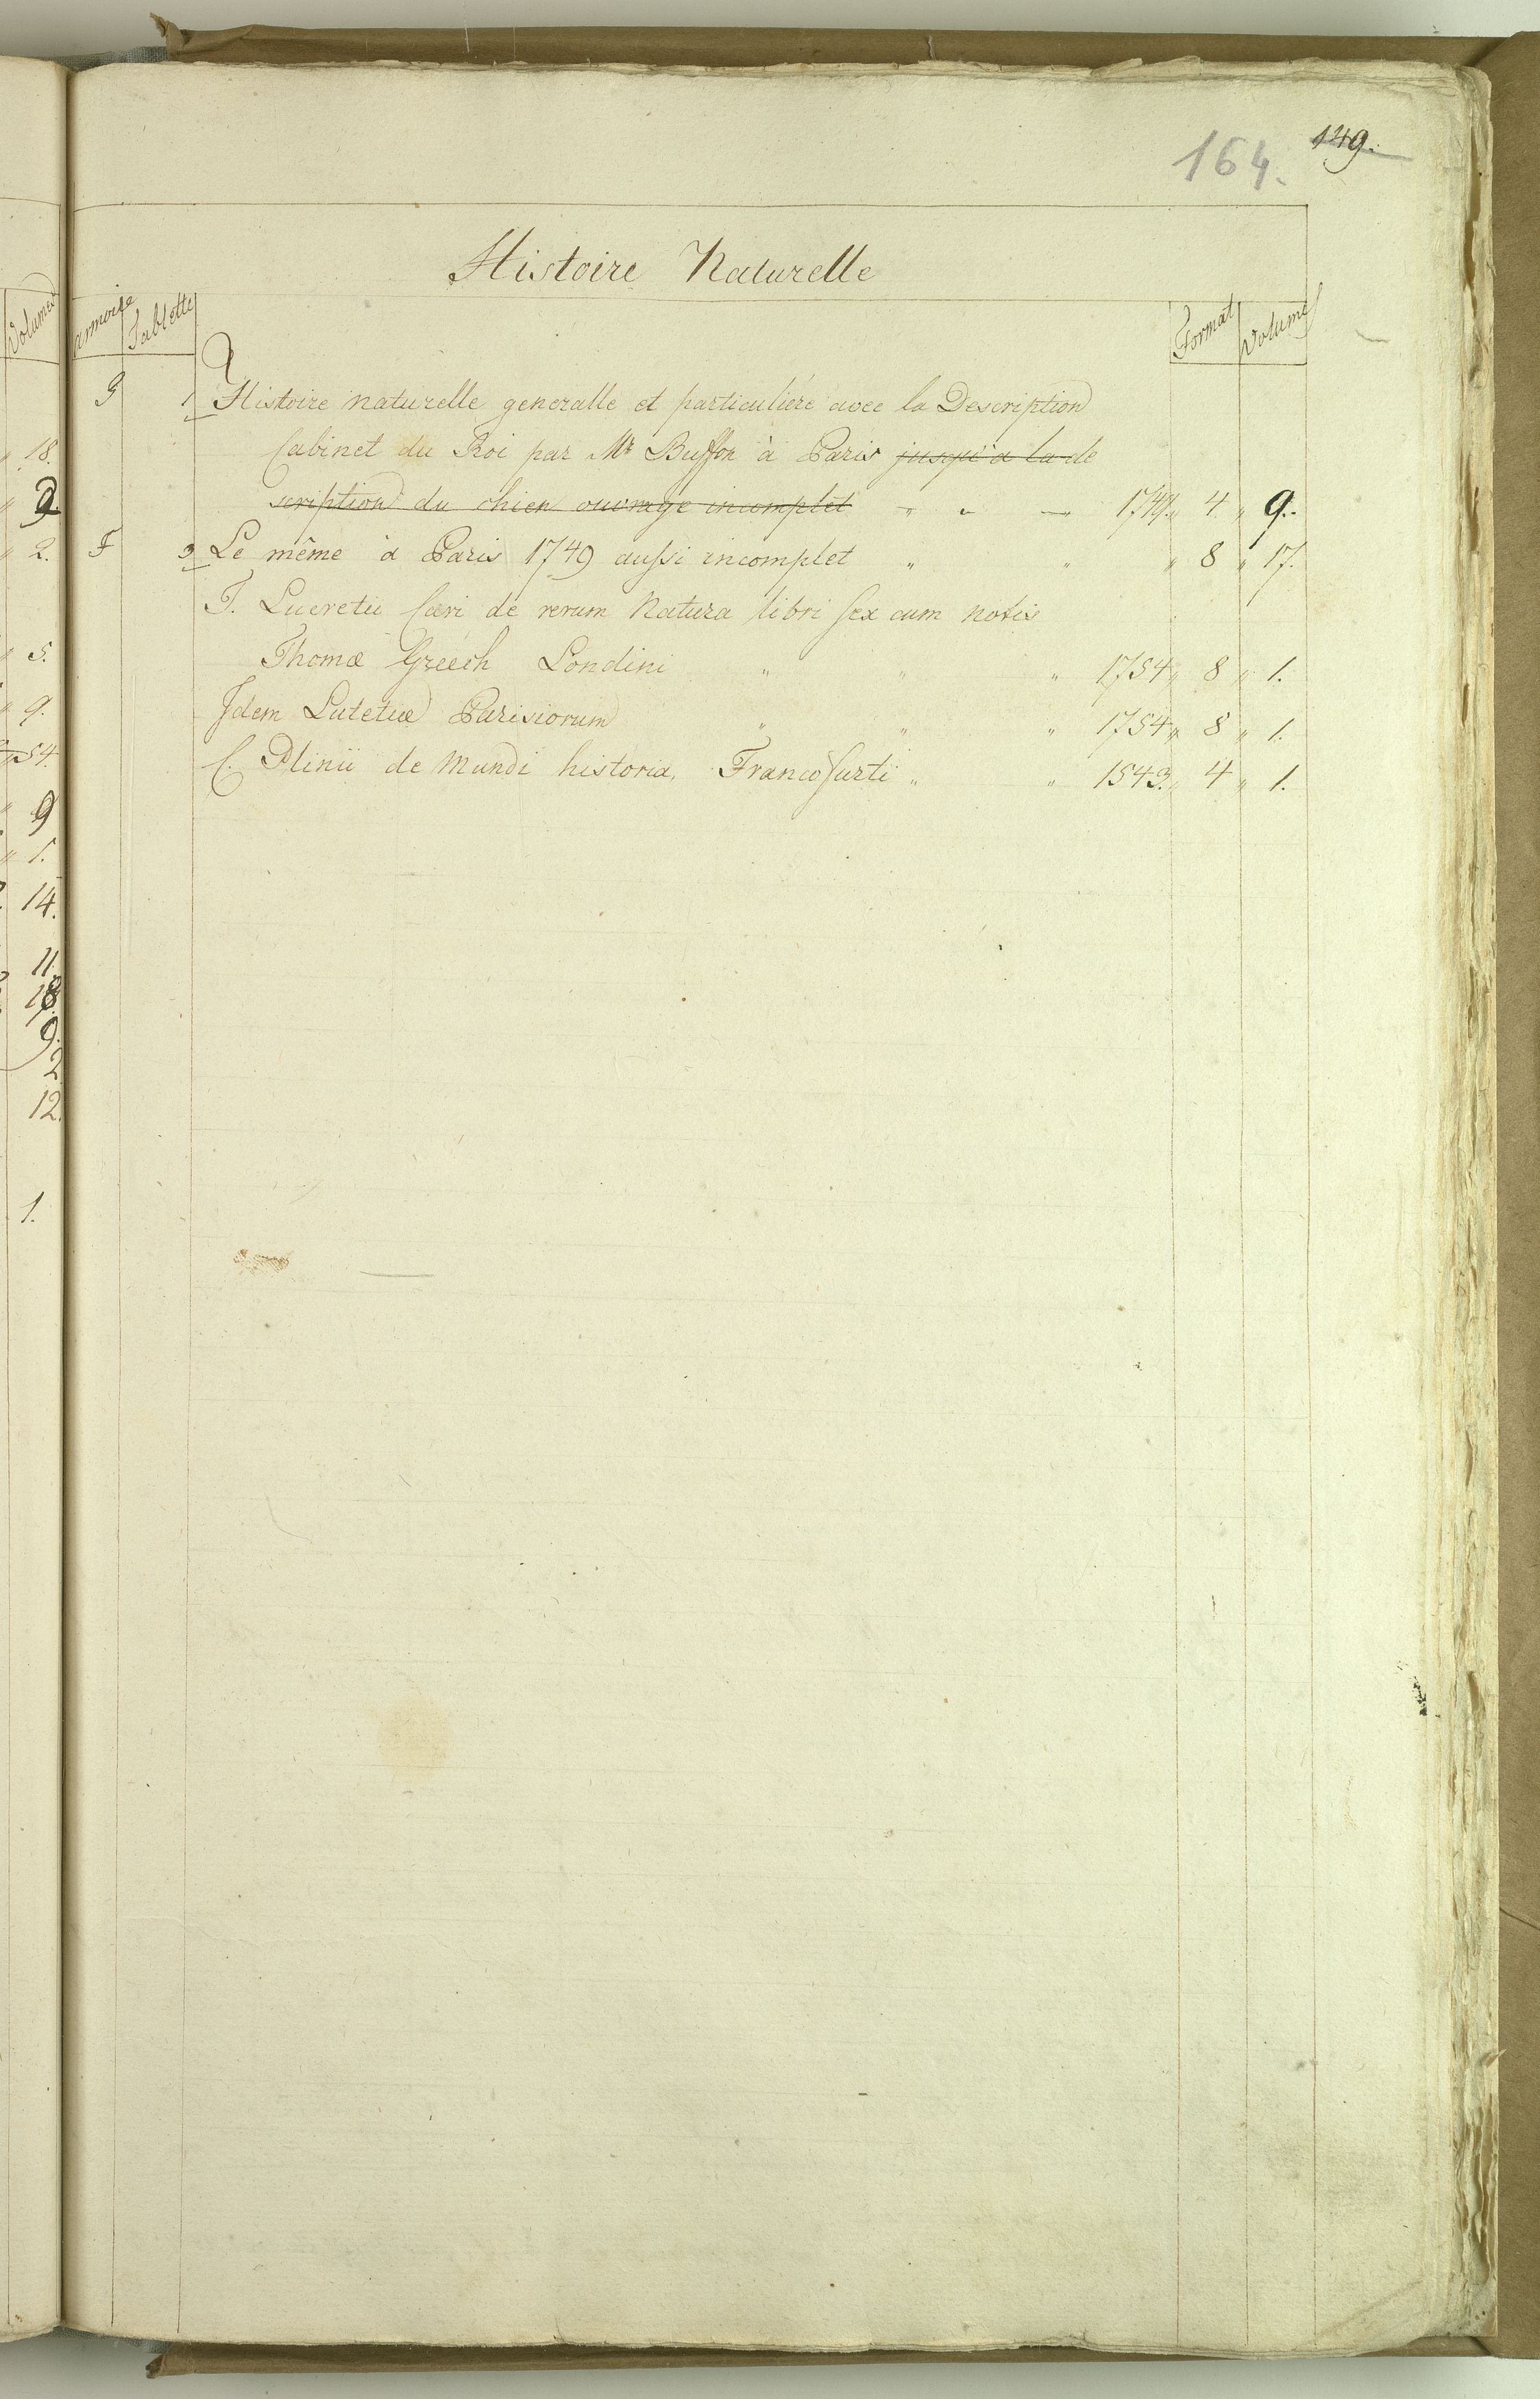 164. 149.
Histoire Naturelle
Volumes
armoire Tablette Format Volume
G 1 Histoire naturelle generalle et particuliére avec la Description
18. Cabinet du Roi par Mr Buffon à Paris jusqu'a la de
scription du chien ouvrage incomplet " " 1749. " 4. " 9.
2. F 3 Le même à Paris 1749 aussi incomplet " " " 8 " 17.
T. Lucretii Cari de rerum Natura libri sex cum notis
5. Thomæ Greech Londini " " " 1754 " 8 " 1.
9. Idem Lutetiæ Parisiorum " " " 1754 " 8 " 1.
54. C. Plinii de Mundi historia, Francofurti " " 1543. " 4 " 1.
9
1.
14.
11.
18.
9.
2
12.
1.